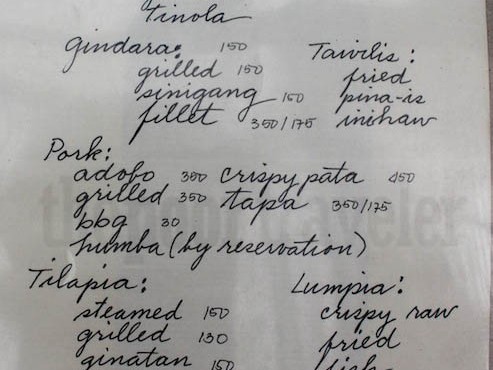 Tinola
gindara: 150
grilled 150
sinigang 150
fillet 350/175
Taivilis:
fried
pina-is
inihaw
Pork:
adobo 350
grilled 350
bbq 30
humba (by reservation)
crispy pata 450
tapa 350/175
Tilapia:
steamed 150
grilled 130
ginatan 150
Lumpia:
crispy raw
fried
fish